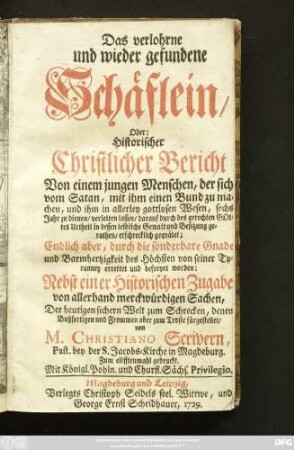 Das verlohrne
und wieder gefundene
Schäflein/
Oder:
Historischer
Christlicher Bericht
Von einem jungen Menschen, der sich
vom Satan, mit ihm einen Bund zu ma-
chen, und ihm in allerley gottlosen Wesen, sechs
Jahr zu dienen/ verleiten lassen/ darauf durch des gerechten GOt-
tes Urtheil in dessen leibliche Gewalt und Besitzung ge-
rathen/ erschrecklich gequälet;
Endlich aber, durch die sonderbare Gnade
und Barmhertzigkeit des Höchsten von seiner Ty-
ranney errettet und befreyet worden:
Nebst einer Historischen Zugabe
von allerhand merckwürdigen Sachen,
Der heutigen sichern Welt zum Schrecken, denen
Bußfertigen und Frommen aber zum Troste fürgestellet/
von
M. CHRISTIANO Scrivern,
Past. bey der S. Jacobs-Kirche in Magdeburg.
Zum eilfftenmahl gedruckt.
Mit Königl. Pohln. und Churfl. Sächs. Privilegio.
Magdeburg und Leipzig,
Verlegts Christoph Seidels seel. Wittwe, und
George Ernst Scheidhauer, 1729.